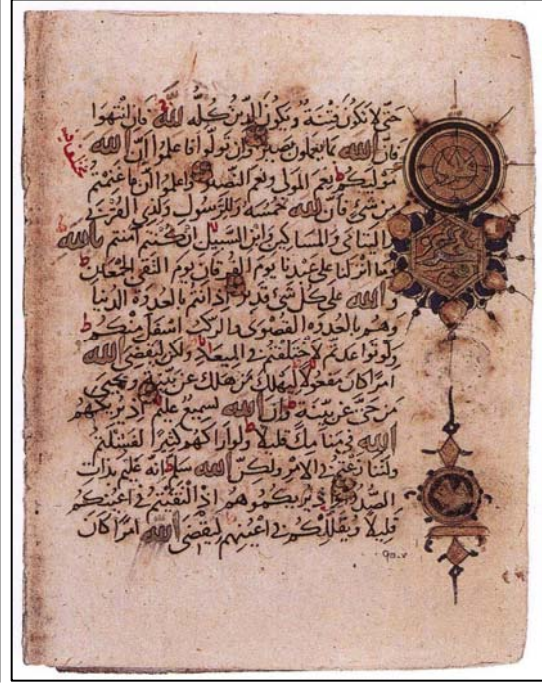 حَتّى لا تَكونَ فِتنَةٌ ويَكونَ الدّينُ كُلُّه لله فان انتَهَوا
فانّ الله بما يَعملون بَصيرٌ وان تَولّوا فاعلموا انّ الله
مَوليكُم نِعم المَولى ونِعم النَّصير واعلموا انّما غَنِمتُم
مِن شئ فانّ لله خُمُسَه وللرَّسول ولِذي القُربى
واليتامى والمساكين وابن السبيل ان كنتم آمنتم بالله
وما انزلنا على عبدنا يوم الفرقان يوم التقى الجمعان
والله على كل شئ قدير اذ انتم بالعدوة الدنيا
وهم بالعدوة القصوى والركب اسفل منكم
ولو تواعدتم لاختلفتم في الميعاد ولكن ليقضى الله
امرًا كان مفعولا ليهلك من هلك عن بينة ويحيى
من حىّ عن بينة وانّ الله لسميع عليم اذ يريكهم
الله في منامك قليلا ولو اراكهم كثيرًا لفشلتم
ولتنازعتم في الامر ولكنّ الله سلم انه عليم بذات
الصدور واذ يريكموهم اذ التقيتم في اعينكم
قليلا ويقللكم في اعينهم ليقضى الله امرًا كان